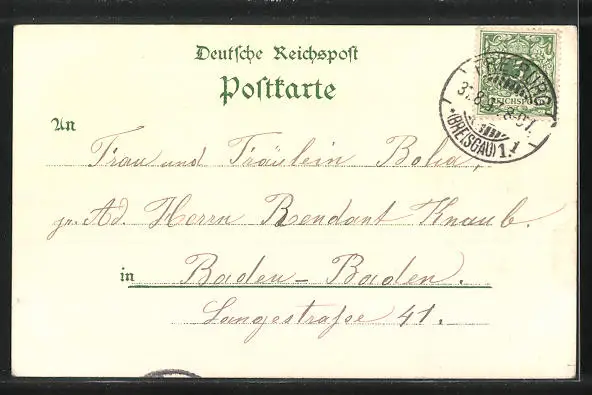 Deutsche Reichspost
Postkarte
An
Frau und Fräulein Bolia,
pr. Ad. Herrn Rendant Knaub.
in Baden-Baden.
Langestraße 41.
FREIBURG
(BREISGAU) 1.
REICHSPOST